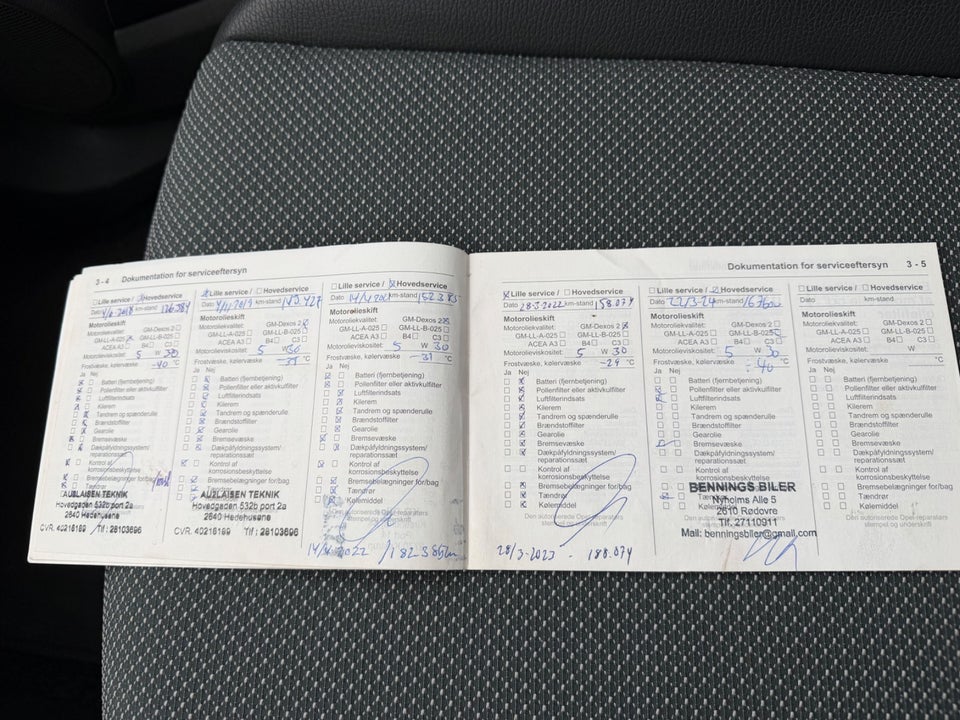 3 - 4 Dokumentation for serviceeftersyn
Lille service / Hovedservice
Dato km-stand
Motorolieskift
Motoroliekvalitet: GM-Dexos 2
GM-LL-A-025 GM-LL-B-025
ACEA A3 B4 C3
Motorolieviskositet: 5 W 30
Frostvæske, kølervæske -40 °C
Ja Nej
Batteri (fjernbetjening)
Pollenfilter eller aktivkulfilter
Luftfilterindsats
Kilerem
Tandrem og spænderulle
Brændstoffilter
Gearolie
Bremsevæske
Dækpåfyldningssystem/
reparationssæt
Kontrol af
korrosionsbeskyttelse
Hovedgaden 532b port 2a
2640 Hedehusene
CVR. 40216189 Tlf: 28103696
Lille service / Hovedservice
Dato km-stand
Motorolieskift
Motoroliekvalitet: GM-Dexos 2
GM-LL-A-025 GM-LL-B-025
ACEA A3 B4 C3
Motorolieviskositet: 5 W 30
Frostvæske, kølervæske °C
Ja Nej
Batteri (fjernbetjening)
Pollenfilter eller aktivkulfilter
Luftfilterindsats
Kilerem
Tandrem og spænderulle
Brændstoffilter
Gearolie
Bremsevæske
Dækpåfyldningssystem/
reparationssæt
Kontrol af
korrosionsbeskyttelse
Bremsebelægninger for/bag
Hovedgaden 532b port 2a
2640 Hedehusene
CVR. 40216189 Tlf: 28103696
Lille service / Hovedservice
Dato km-stand
Motorolieskift
Motoroliekvalitet: GM-Dexos 2
GM-LL-A-025 GM-LL-B-025
ACEA A3 B4 C3
Motorolieviskositet: 5 W 30
Frostvæske, kølervæske -31 °C
Ja Nej
Batteri (fjernbetjening)
Pollenfilter eller aktivkulfilter
Luftfilterindsats
Kilerem
Tandrem og spænderulle
Brændstoffilter
Gearolie
Bremsevæske
Dækpåfyldningssystem/
reparationssæt
Kontrol af
korrosionsbeskyttelse
Bremsebelægninger for/bag
Tændrør
Kølemiddel
Dokumentation for serviceeftersyn 3 - 5
Lille service / Hovedservice
Dato 28-3-2022 km-stand 158.074
Motorolieskift
Motoroliekvalitet: GM-Dexos 2
GM-LL-A-025 GM-LL-B-025
ACEA A3 B4 C3
Motorolieviskositet: 5 W 30
Frostvæske, kølervæske -29 °C
Ja Nej
Batteri (fjernbetjening)
Pollenfilter eller aktivkulfilter
Luftfilterindsats
Kilerem
Tandrem og spænderulle
Brændstoffilter
Gearolie
Bremsevæske
Dækpåfyldningssystem/
reparationssæt
Kontrol af
korrosionsbeskyttelse
Bremsebelægninger for/bag
Tændrør
Kølemiddel
Den autoriserede Opel-reparatørs
stempel og underskrift
28/3-2023 - 188.074
Lille service / Hovedservice
Dato 22/3-24 km-stand
Motorolieskift
Motoroliekvalitet: GM-Dexos 2
GM-LL-A-025 GM-LL-B-025
ACEA A3 B4 C3
Motorolieviskositet: 5 W 30
Frostvæske, kølervæske -40 °C
Ja Nej
Batteri (fjernbetjening)
Pollenfilter eller aktivkulfilter
Luftfilterindsats
Kilerem
Tandrem og spænderulle
Brændstoffilter
Gearolie
Bremsevæske
Dækpåfyldningssystem/
reparationssæt
Kontrol af
korrosionsbeskyttelse
BENNINGS BILER
Nyholms Alle 5
2610 Rødovre
Tlf. 27110911
Mail: benningsbiler@gmail.com
Lille service / Hovedservice
Dato km-stand
Motorolieskift
Motoroliekvalitet: GM-Dexos 2
GM-LL-A-025 GM-LL-B-025
ACEA A3 B4 C3
Motorolieviskositet: W
Frostvæske, kølervæske °C
Ja Nej
Batteri (fjernbetjening)
Pollenfilter eller aktivkulfilter
Luftfilterindsats
Kilerem
Tandrem og spænderulle
Brændstoffilter
Gearolie
Bremsevæske
Dækpåfyldningssystem/
reparationssæt
Kontrol af
korrosionsbeskyttelse
Bremsebelægninger for/bag
Tændrør
Kølemiddel
Den autoriserede Opel-reparatørs
stempel og underskrift